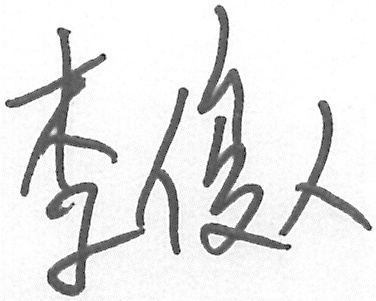 李俊人